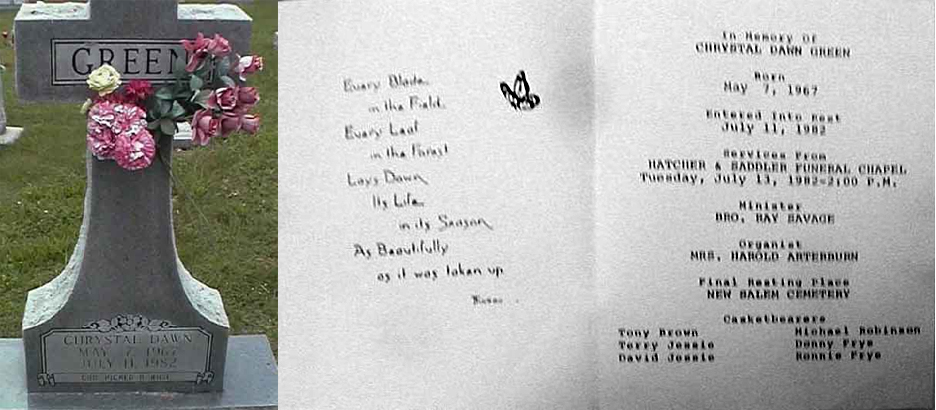 GREEN
CHRYSTAL DAWN
MAY 7, 1967
JULY 11, 1982
GOD PICKED A
Every Blade
in the Field
Every Leaf
in the Forest
Lays Down
Its Life
in its Season
As Beautifully
as it was taken up
In Memory Of
CHRYSTAL DAWN GREEN
Born
May 7, 1967
Entered Into Rest
July 11, 1982
Services From
HATCHER & SADDLER FUNERAL CHAPEL
Tuesday, July 13, 1982-2:00 P.M.
Minister
BRO. RAY SAVAGE
Organist
MRS. HAROLD ARTERBURN
Final Resting Place
NEW SALEM CEMETERY
Casketbearers
Tony Brown Michael Robinson
Terry Jessie Donny Frye
David Jessie Ronnie Frye